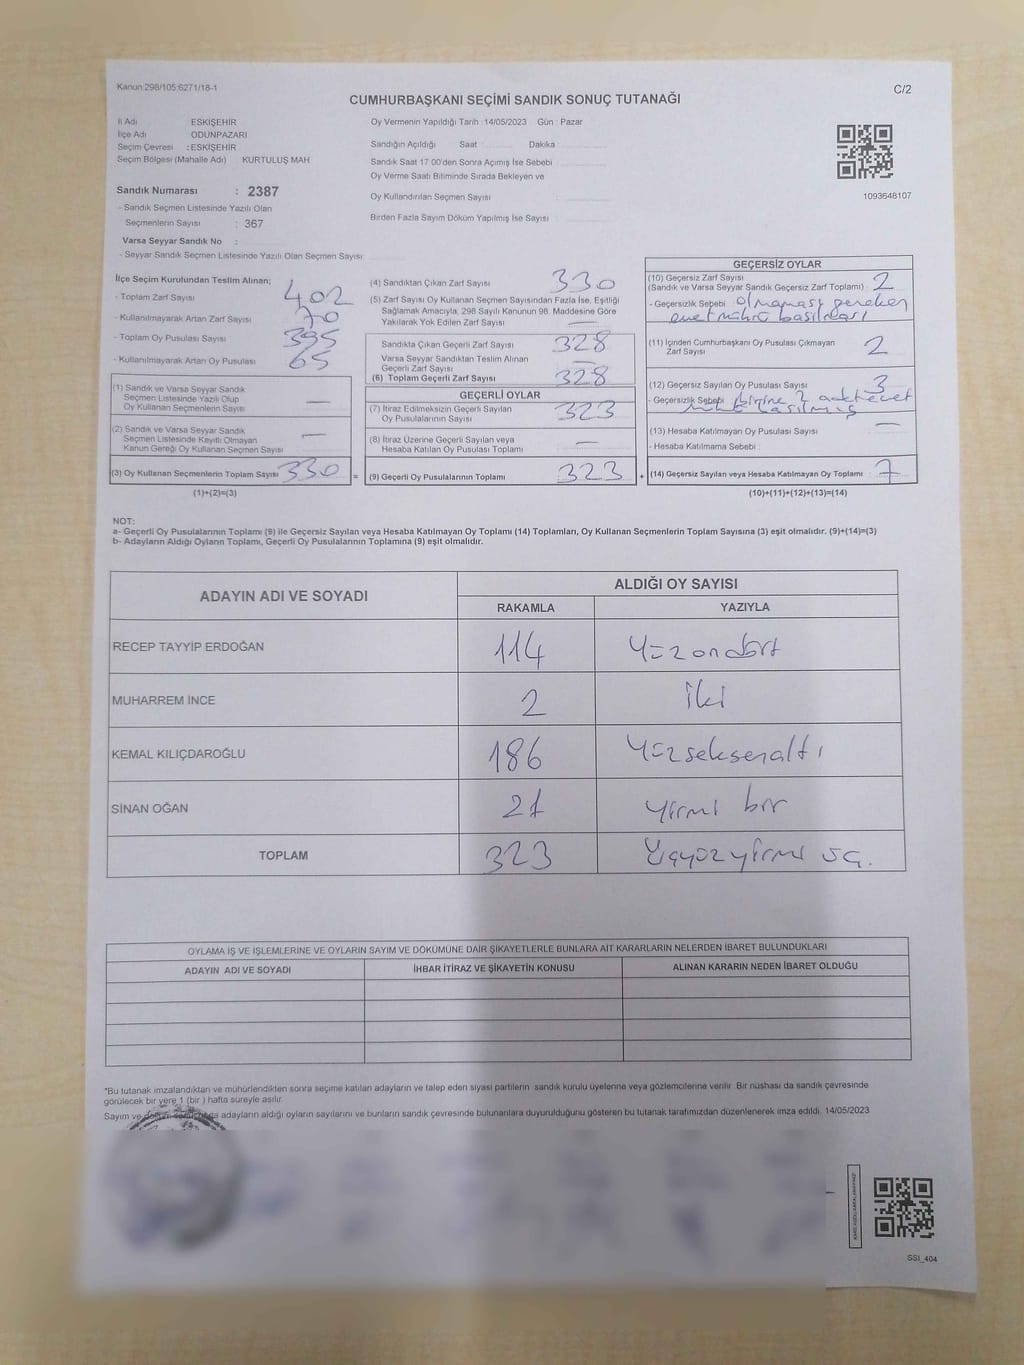 Kanun:298/105:6271/18-1
C/2
CUMHURBAŞKANI SEÇİMİ SANDIK SONUÇ TUTANAĞI
İl Adı ESKİŞEHİR
İlçe Adı ODUNPAZARI
Seçim Çevresi : ESKİŞEHİR
Seçim Bölgesi (Mahalle Adı) KURTULUŞ MAH
Sandık Numarası : 2387
- Sandık Seçmen Listesinde Yazılı Olan
Seçmenlerin Sayısı : 367
Varsa Seyyar Sandık No :
- Seyyar Sandık Seçmen Listesinde Yazılı Olan Seçmen Sayısı
Oy Vermenin Yapıldığı Tarih 14/05/2023 Gün : Pazar
Sandığın Açıldığı Saat Dakika
Sandık Saat 17.00'den Sonra Açımış İse Sebebi
Oy Verme Saati Bitiminde Sırada Bekleyen ve
Oy Kullandırılan Seçmen Sayısı :
Birden Fazla Sayım Döküm Yapılmış İse Sayısı
1093648107
İlçe Seçim Kurulundan Teslim Alınan;
- Toplam Zarf Sayısı 402
- Kullanılmayarak Artan Zarf Sayısı 70
- Toplam Oy Pusulası Sayısı 395
- Kullanılmayarak Artan Oy Pusulası 65
(1) Sandık ve Varsa Seyyar Sandık
Seçmen Listesinde Yazılı Olup
Oy Kullanan Seçmenlerin Sayısı —
(2) Sandık ve Varsa Seyyar Sandık
Seçmen Listesinde Kayıtlı Olmayan
Kanun Gereği Oy Kullanan Seçmen Sayısı —
(3) Oy Kullanan Seçmenlerin Toplam Sayısı 330
(1)+(2)=(3)
(4) Sandıktan Çıkan Zarf Sayısı 330
(5) Zarf Sayısı Oy Kullanan Seçmen Sayısından Fazla İse, Eşitliği
Sağlamak Amacıyla, 298 Sayılı Kanunun 98. Maddesine Göre
Yakılarak Yok Edilen Zarf Sayısı —
Sandıkta Çıkan Geçerli Zarf Sayısı 328
Varsa Seyyar Sandıktan Teslim Alınan
Geçerli Zarf Sayısı —
(6) Toplam Geçerli Zarf Sayısı 328
GEÇERLİ OYLAR
(7) İtiraz Edilmeksizin Geçerli Sayılan
Oy Pusulalarının Sayısı 323
(8) İtiraz Üzerine Geçerli Sayılan veya
Hesaba Katılan Oy Pusulası Toplamı —
= (9) Geçerli Oy Pusulalarının Toplamı 323 +
GEÇERSİZ OYLAR
(10) Geçersiz Zarf Sayısı
(Sandık ve Varsa Seyyar Sandık Geçersiz Zarf Toplamı) 2
- Geçersizlik Sebebi olmaması gereken
evet mührü basılması
(11) İçinden Cumhurbaşkanı Oy Pusulası Çıkmayan
Zarf Sayısı 2
(12) Geçersiz Sayılan Oy Pusulası Sayısı 3
- Geçersizlik Sebebi birine 2 adet evet
mührü basılmış
(13) Hesaba Katılmayan Oy Pusulası Sayısı —
- Hesaba Katılmama Sebebi :
(14) Geçersiz Sayılan veya Hesaba Katılmayan Oy Toplamı 7
(10)+(11)+(12)+(13)=(14)
NOT:
a- Geçerli Oy Pusulalarının Toplamı (9) ile Geçersiz Sayılan veya Hesaba Katılmayan Oy Toplamı (14) Toplamları, Oy Kullanan Seçmenlerin Toplam Sayısına (3) eşit olmalıdır. (9)+(14)=(3)
b- Adayların Aldığı Oyların Toplamı, Geçerli Oy Pusulalarının Toplamına (9) eşit olmalıdır.
ADAYIN ADI VE SOYADI ALDIĞI OY SAYISI
RAKAMLA YAZIYLA
RECEP TAYYİP ERDOĞAN 114 Yüzondört
MUHARREM İNCE 2 İki
KEMAL KILIÇDAROĞLU 186 Yüzseksenaltı
SİNAN OĞAN 21 Yirmi bir
TOPLAM 323 Üçyüzyirmi üç.
OYLAMA İŞ VE İŞLEMLERİNE VE OYLARIN SAYIM VE DÖKÜMÜNE DAİR ŞİKAYETLERLE BUNLARA AİT KARARLARIN NELERDEN İBARET BULUNDUKLARI
ADAYIN ADI VE SOYADI İHBAR İTİRAZ VE ŞİKAYETİN KONUSU ALINAN KARARIN NEDEN İBARET OLDUĞU
*Bu tutanak imzalandıktan ve mühürlendikten sonra seçime katılan adayların ve talep eden siyasi partilerin sandık kurulu üyelerine veya gözlemcilerine verilir. Bir nüshası da sandık çevresinde
görülecek bir yere 1 (bir) hafta süreyle asılır.
Sayım ve döküm sonucunda adayların aldığı oyların sayılarını ve bunların sandık çevresinde bulunanlara duyurulduğunu gösteren bu tutanak tarafımızdan düzenlenerek imza edildi. 14/05/2023
SSI_404